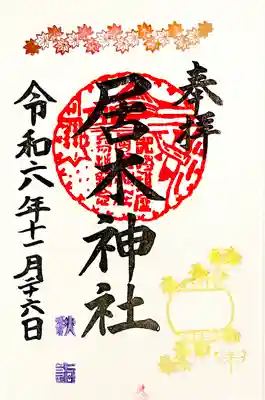 奉拝
居木神社
令和六年十一月二十六日
秋
詣